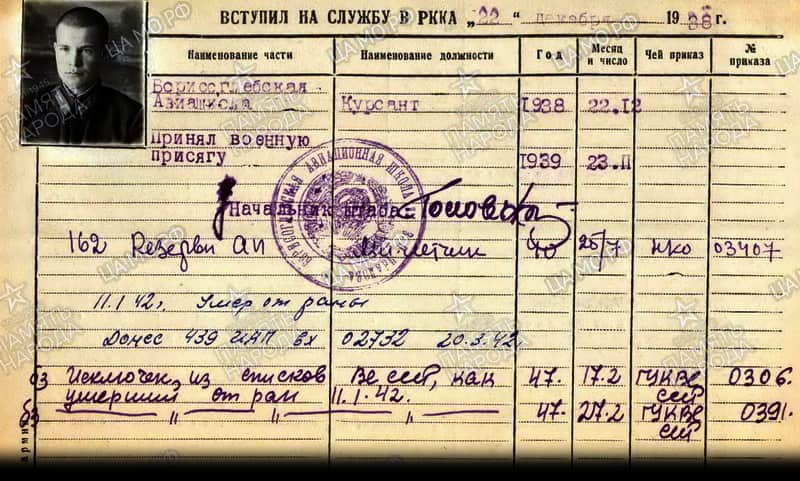 ВСТУПИЛ НА СЛУЖБУ В РККА „22“ декабря 1938 г.
Наименование части Наименование должности Год Месяц и число Чей приказ № приказа
Борисоглебская
Авиашкола Курсант 1938 22.12
Принял военную
присягу 1939 23.II
Начальник штаба
162 Резервн АП Мл летчик 40 25/7 НКО 03407
11.1.42г. Умер от раны
Донес 439 ИАП вх 02732 20.3.42.
Исключен из списков ВВС, как 47. 17.2 ГУК ВС 0306.
умерший от ран 11.1.42.
" " " 47. 27.2 ГУК ВС 0391.
ЦАМО.РФ
ПАМЯТЬ НАРОДА